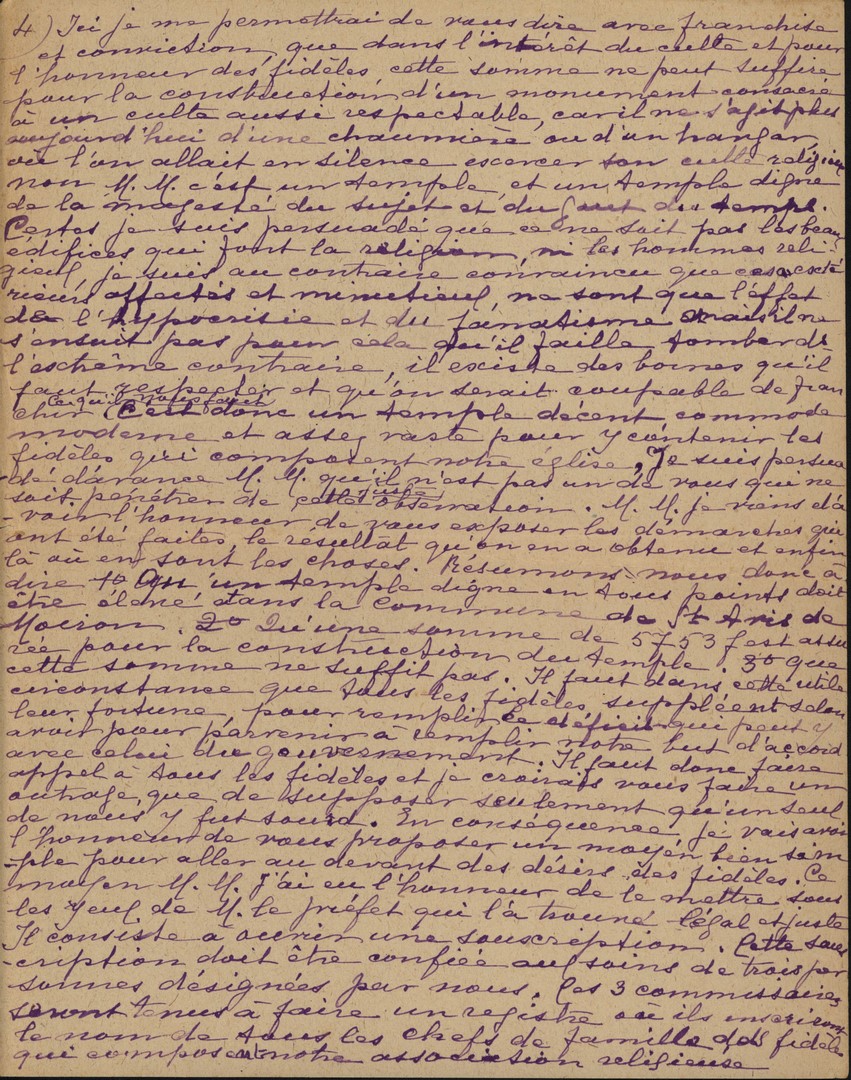 4) Ici je me permettrai de vous dire avec franchise
et conviction, que dans l'intérêt du culte et pour
l'honneur des fidèles, cette somme ne peut suffire
pour la construction d'un monument consacré
à un culte aussi respectable, car il ne s'agit plus
aujourd'hui d'une chaumière ou d'un hangar,
où l'on allait en silence escercer son culte religieux
non M.M. c'est un temple, et un temple digne
de la magesté du sujet et du du temps.
Certes je suis persuadé que ce ne soit pas les beau
édifices qui font la religion, ni les hommes reli-
gieux, je suis au contraire convaincu que ces exté
rieurs affectés et minutieux, ne sont que l'effet
de l'hypocrisie et du fanatisme mais il ne
s'ensuit pas pour cela qu'il faille tomber ds
l'eschême contraire, il existe des bornes qu'il
faut respecter et qu'on serait coupable de fran
chir. (Ce qu'il nous faut
C'est donc un temple décent commode
moderne et assez vaste pour y contenir les
fidèles qui composent notre église. Je suis persua
dé d'avance M.M. qu'il n'est pas un de vous qui ne
soit pénétrer de cette juste observation. M.M. je viens d'a
-voir l'honneur de vous exposer les démarches qui
ont été faites, le résultat qu'on en a obtenu et enfin
là où en sont les choses. Résumons-nous donc à
dire 1o Qu'un temple digne en tous points doit
être élevé dans la commune de St Avis de
Moiron. 2o Qu'une somme de 5753 f est assu
rée pour la construction du temple. 3o que
cette somme ne suffit pas. Il faut dans cette utile
circonstance que tous les fidèles suppléent selon
leur fortune, pour remplir ce déficit qui peut y
avoir pour parvenir à remplir notre but d'accord
avec celui du gouvernement. Il faut donc faire
appel à tous les fidèles et je croirais vous faire un
outrage, que de supposer seulement qu'un seul
de nous y fut sourd. En conséquence je vais avoir
l'honneur de vous proposer un moyen bien sim
-ple pour aller au devant des désirs des fidèles. Ce
moyen M.M. j'ai eu l'honneur de le mettre sous
les yeux de M. le préfet qui l'a trouvé légal et juste
Il consiste à ouvrir une souscription. Cette sous
-cription doit être confiée aux soins de trois per
sonnes désignées par nous. Les 3 commissaires
seront tenus à faire un registre où ils inscriront
le nom de tous les chefs de famille des fidèles
qui composent notre association religieuse